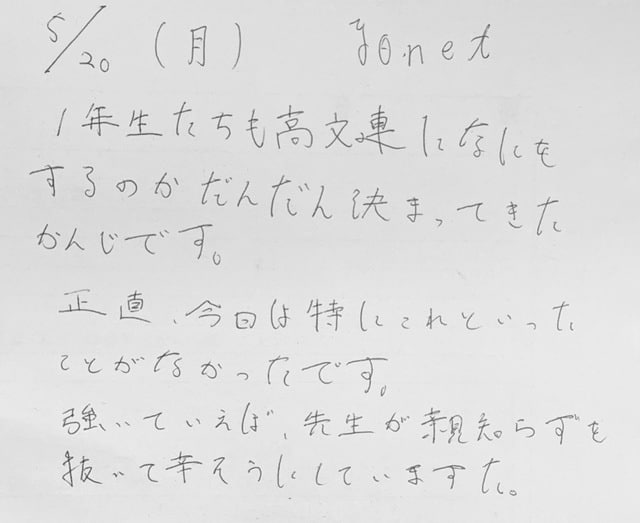 5/20 (月) yonet
1年生たちも高文連になにを
するのかだんだん決まってきた
かんじです。
正直、今日は特にこれといった
ことがなかったです。
強いていえば、先生が親知らずを
抜いて辛そうにしていますた。